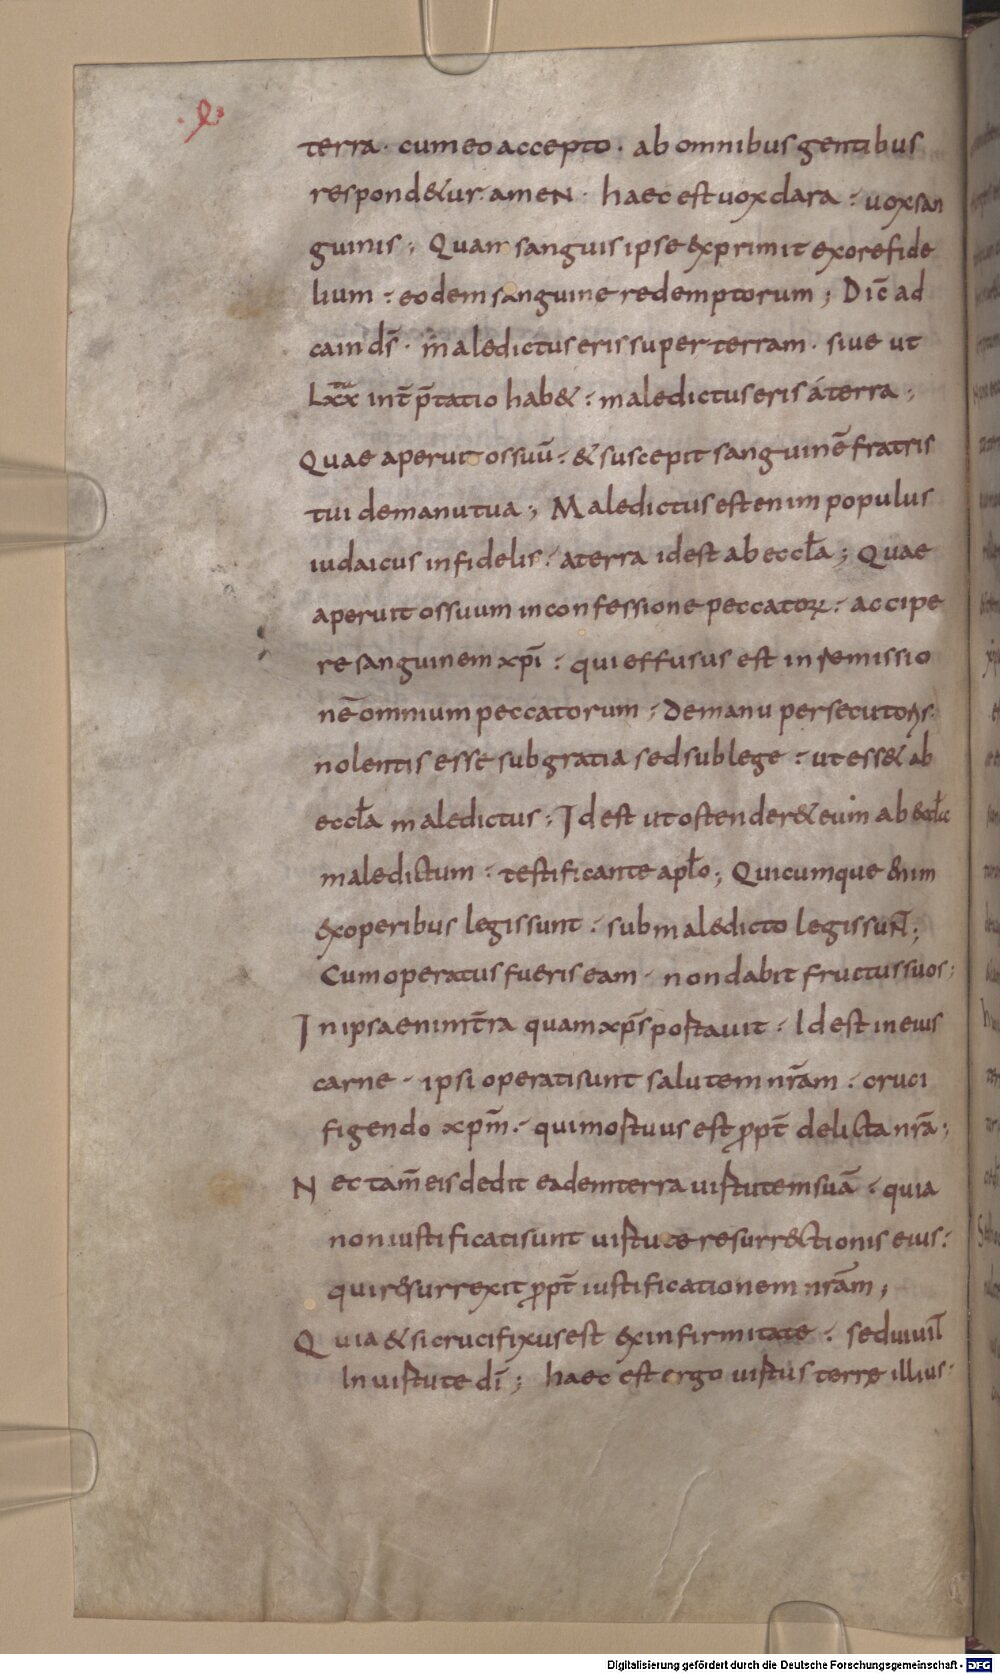 terra · cum eo accepto · ab omnibus gentibus
respond&ur · ameN · haec est uox clara : uox san
guinis ; Quam sanguis ipse exprimit ex ore fide
lium : eodem sanguine redemptorum ; Dic̄ ad
cain ds̄ · maledictus eris super terram · siue ut
Lxx int̄ p̄tatio hab& : maledictus eris á terra ;
Quae aperuit os suū : & suscepit sanguinē fratris
tui de manu tua ; Maledictus est enim populus
iudaicus infidelis : a terra id est ab eccl̄a ; Quae
aperuit os suum in confessione peccatoꝝ : accipe
re sanguinem xp̄i : qui effusus est in remissio
nē omnium peccatorum ; De manu persecutoris
nolentis esse sub gratia sed sub lege : ut ess& ab
eccl̄a maledictus ; Id est ut ostender& eum ab
maledictum : testificante apl̄o ; Quicumque enim
ex operibus legis sunt : sub maledicto legis suN̄ ;
Cum operatus fueris eam · non dabit fructus suos ;
In ipsa enim t̄ra quam xp̄s portauit : Id est in eius
carne · ipsi operati sunt salutem nr̄am : cruci
figendo xp̄m : qui mortuus est ꝓpt̄ delicta nr̄a ;
Nec tam̄ eis dedit eadem terra uirtutem suā : quia
non iustificati sunt uirtute resurr&ctionis eius :
qui resurrexit ꝓpt̄ iustificationem nr̄am ;
Quia & si crucifixus est ex infirmitate : sed uiuit
In uirtute dī ; haec est ergo uirtus terrę illius :
Digitalisierung gefördert durch die Deutsche Forschungsgemeinschaft - DFG